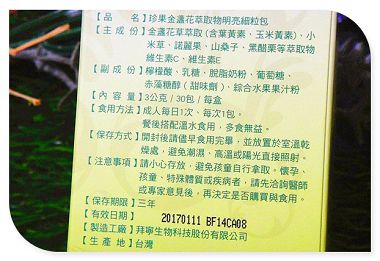 【品　　名】珍果金盞花萃取物明亮細粒包
【主 成 份】金盞花萃取 (含葉黃素、玉米黃素)、小
米草、諾麗果、山桑子、黑醋栗等萃取物
維生素C、維生素E
【副 成 份】檸檬酸、乳糖、脫脂奶粉、葡萄糖、
赤藻糖醇 ( 甜味劑 )、綜合水果果汁粉
【內 容 量】3公克 / 30包 / 每盒
【食用方法】成人每日1次、每次1包。
餐後搭配溫水食用，多食無益。
【保存方式】開封後請儘早食用完畢，並放置於室溫乾
燥處，避免潮濕、高溫或陽光直接照射。
【注意事項】請小心存放，避免孩童自行拿取。懷孕、
孩童、特殊體質或疾病者，請先洽詢醫師
或專家意見後，再決定是否購買與食用。
【保存期限】三年
【有效日期】 20170111 BF14CA08
【製造工廠】拜寧生物科技股份有限公司
【生 產 地】台灣